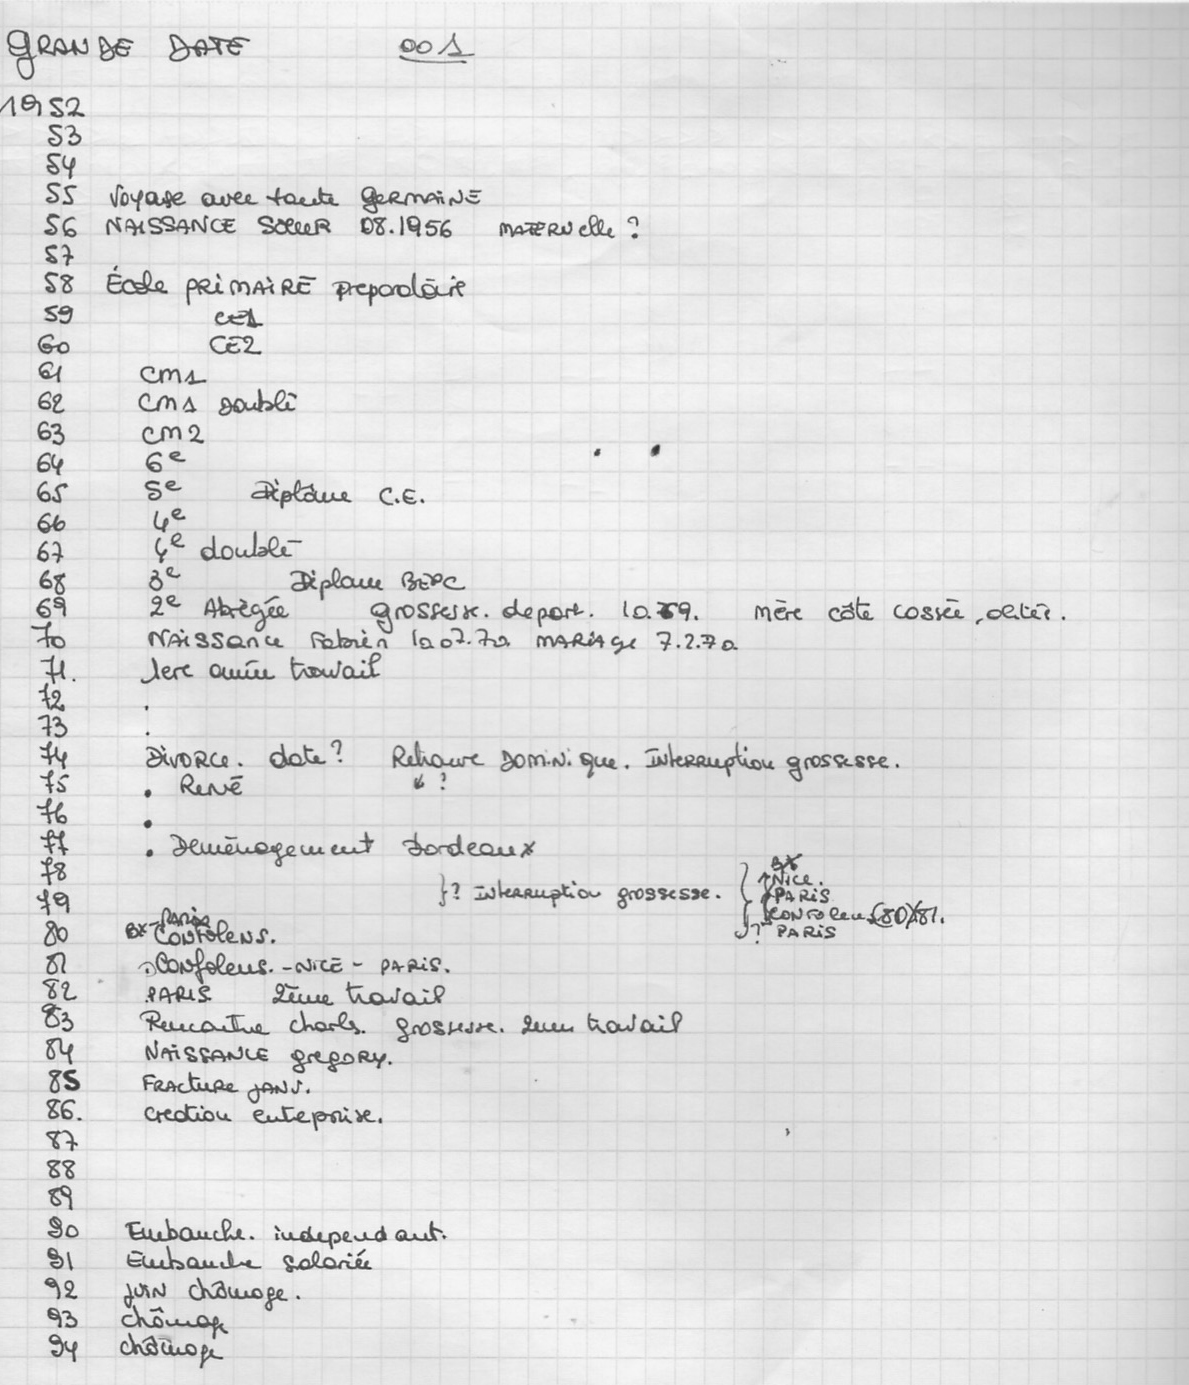 GRANDE DATE 001
1952
53
54
55 Voyage avec tante GERMAINE
56 NAISSANCE SOEUR 08.1956 MATERNelle ?
57
58 École PRIMAIRE preparatoire
59 CE1
60 CE2
61 CM1
62 CM1 Doublé
63 CM2
64 6e
65 5e Diplôme C.E.
66 4e
67 4e doublé
68 3e Diplome BEPC
69 2e Abrégée grossesse. depart. 10.69. mère côte cassée
70 NAissance Fabien 10.07.70 MARiAge 7.2.70
71. 1ere année travail
72 .
73 .
74 DIVORCE. date ? Retrouve DOMiNique. INTERRuption grossesse.
75 . René ?
76 .
77 . Deménagement Bordeaux
78 BX
NICE.
79 } ? INTERRuption grossesse. { PARIS
CONFOLENS (80) 81.
80 BX - PARIS CONFOLENS. ? PARIS
81 CONfolens. - NICE - PARIS.
82 PARIS 2ème travail
83 Rencontre charls. grossesse. 2eme travail
84 NAiSSANCE gregORY.
85 FRACTURE JANV.
86. creation enteprise.
87
88
89
90 Embauche. independant.
91 Embauche salariée
92 JUIN chômage.
93 chômage
94 chômage